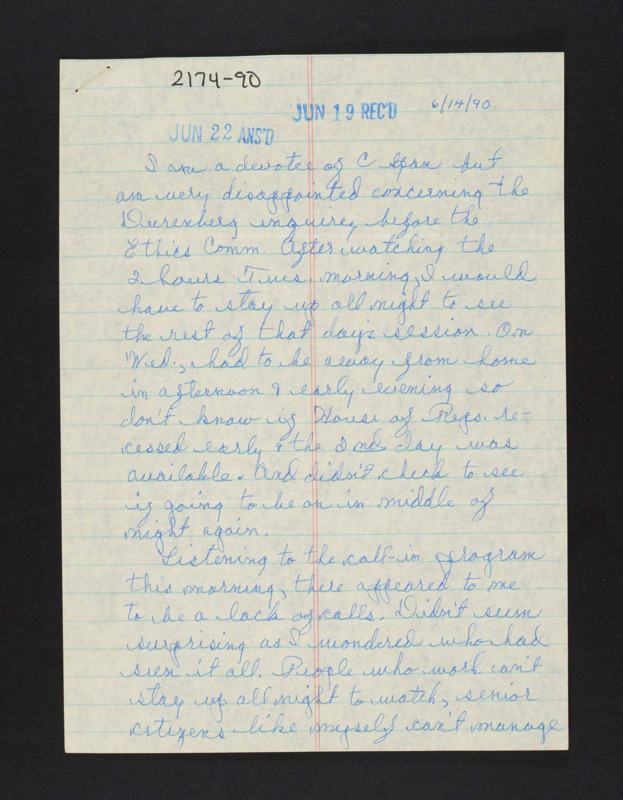 2174-90
JUN 19 REC'D
6/14/90
JUN 22 ANS'D
I am a devotee of C Span but
am very disappointed concerning the
Durenberg inquirey before the
Ethics Comm. After watching the
2 hours Tues. morning, I would
have to stay up all night to see
the rest of that days session. On
Wed., had to be away from home
in afternoon & early evening so
don't know if House of Reps. re-
cessed early & the 2nd day was
available. And didn't check to see
if going to be on in middle of
night again.
Listening to the call-in program
this morning, there appeared to me
to be a lack of calls. Didn't seem
surprising as I wondered who had
seen it all. People who work can't
stay up all night to watch, senior
citizens like myself can't manage